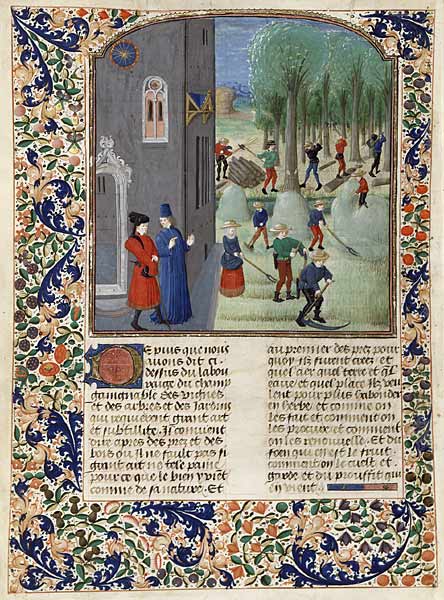 Depuis que nous
auons dit ci
dessus du labou
raige du champ
gaignable des vignes
et des arbres et des Jardins
qui requierent grant cure
et subtilite. Il conuient
dire apres des prez et des
bois ou il ne fault pas si
grant art ne tele paine
pour ce que le bien y vient
comme de sa nature. Et
au premier des prez pour
quoy ilz furent creez et
quel air quel terre et quele
eaue et quel place ilz veu
lent pour plus habonder
en herbe et comment on
les fait et comment on
les procure et comment
on les renouuelle. Et du
foin qui en est le fruit
comment on le cueilt et
garde et du prouffit qui
en vient.